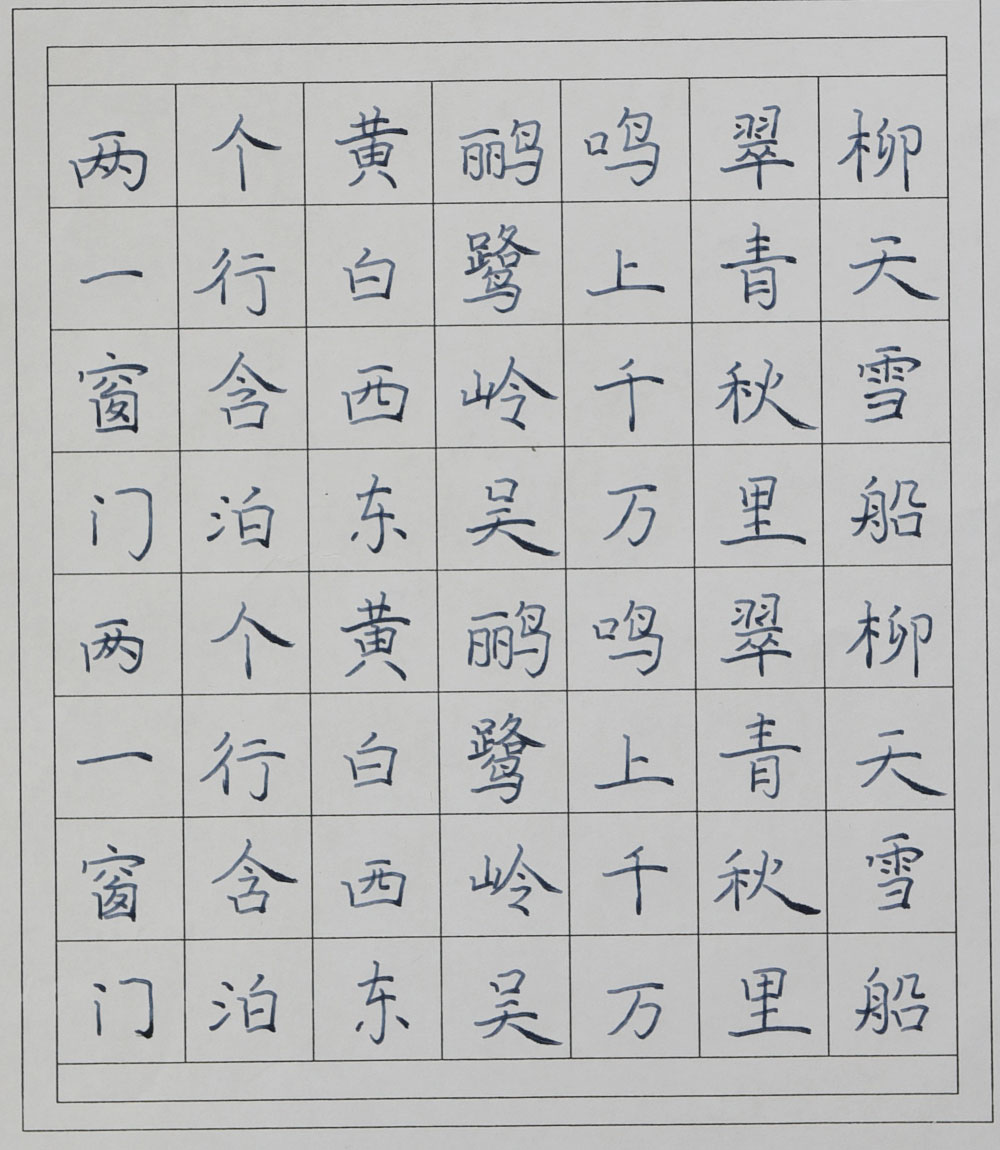 两个黄鹂鸣翠柳
一行白鹭上青天
窗含西岭千秋雪
门泊东吴万里船
两个黄鹂鸣翠柳
一行白鹭上青天
窗含西岭千秋雪
门泊东吴万里船